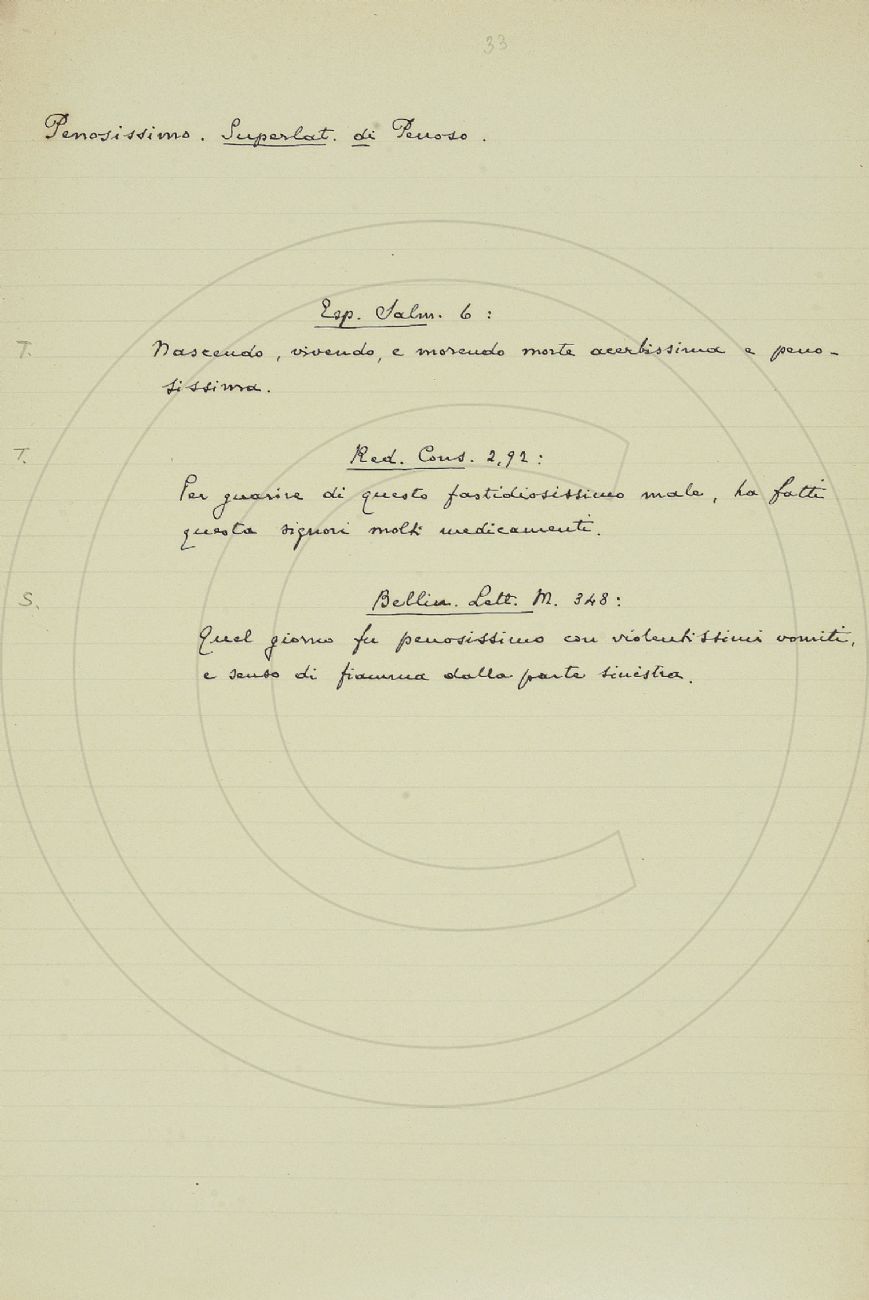 33
Penosissimo. Superlat. di Penoso.
Esp. Salm. 6:
T. Nascendo, vivendo, e morendo morte acerbissima e peno-
sissima.
T. Red. Cons. 2,92:
Per guarire di questo fastidiosissimo male, ha fatti
questa signori molti medicamenti.
S. Bellin. Lett. M. 348:
Quel giorno fu penosissimo con violentissimi vomiti,
e senso di fiamma dalla parte sinistra.